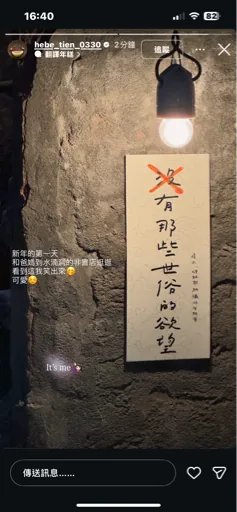 16:40
82
hebe_tien_0330 2分鐘
追蹤
翻譯年糕 >
沒有那些世俗的欲望
新年的第一天
和爸媽到水滴洞的非書店逛逛
看到這我笑出來🤭
可愛☺️
It's me
傳送訊息......